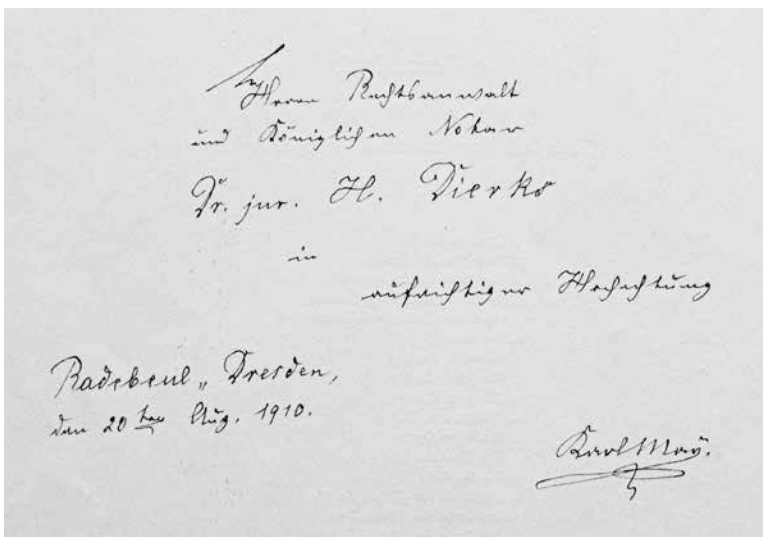 Herrn Rechtsanwalt
und Königlichen Notar
Dr. jur. H. Dierks
in
aufrichtiger Hochachtung
Radebeul „ Dresden,
den 20ten Aug. 1910.
Karl May.